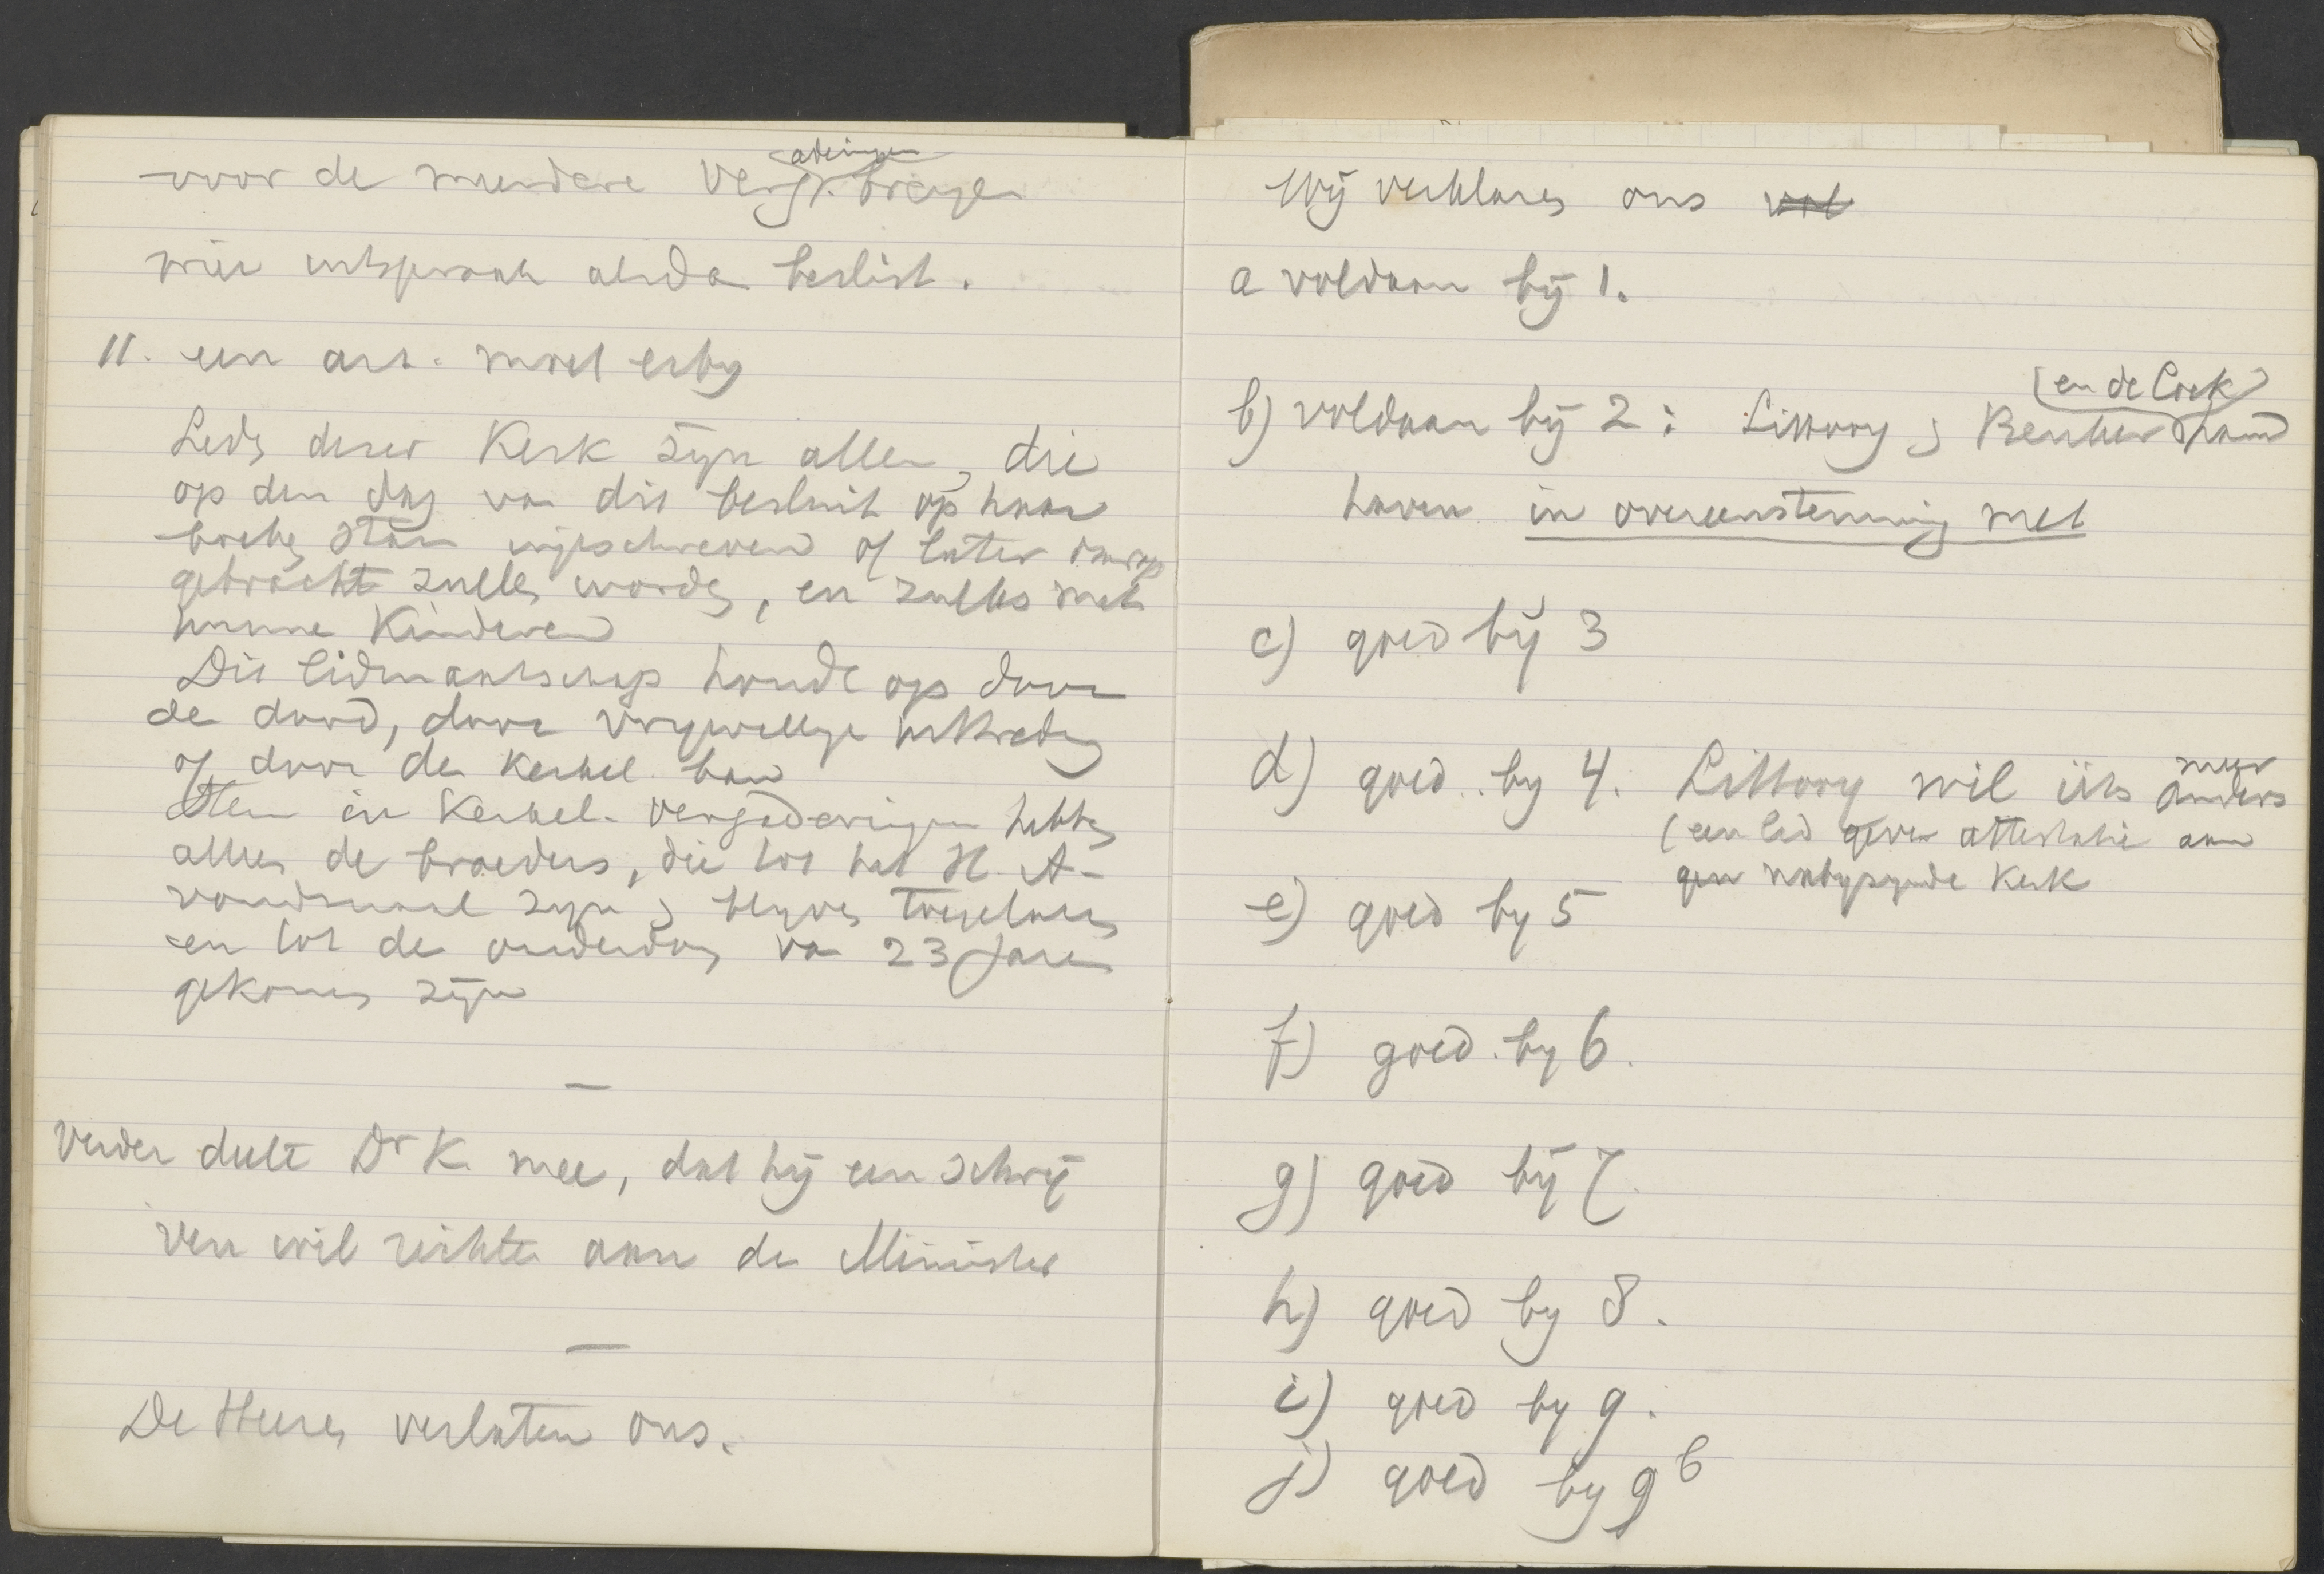 aderingen
voor de meerdere Verg. brengen
wier uitspraak alsdan beslist.
11. een art. moet erby
Leden dezer Kerk zyn allen, die
op den dag van dit besluit op haar
boeken staan ingeschreven of later daarop
gebracht zullen worden, en zulks met
hunne Kinderen
Dit lidmaatschap houdt op door
de dood, door vrywillige uittreding
of door de kerkel. ban
Stem in Kerkel. vergaderingen hebben
alleen de broeders, die tot het H. A-
vondmaal zyn & blyven toegelaten
en tot de ouderdom van 23 Jaren
gekomen zyn
—
Verder deelt Dr K. mee, dat hij een schrij
ven wil richten aan de Minister
—
De Heeren verlaten ons.
Wij verklaren ons vol
a voldaan bij 1.
(en de Cock)
b) voldaan bij 2: Littooy & Beuker
haven in overeenstemming met
c) goed bij 3
d) goed by 4. Littooy wil iets meer anders
(een lid geven attestatie aan
gen nabyzynde Kerk
e) goed by 5
f) goed by 6.
g) goed bij 7.
h) goed by 8.
i) goed by 9.
j) goed by 9 b